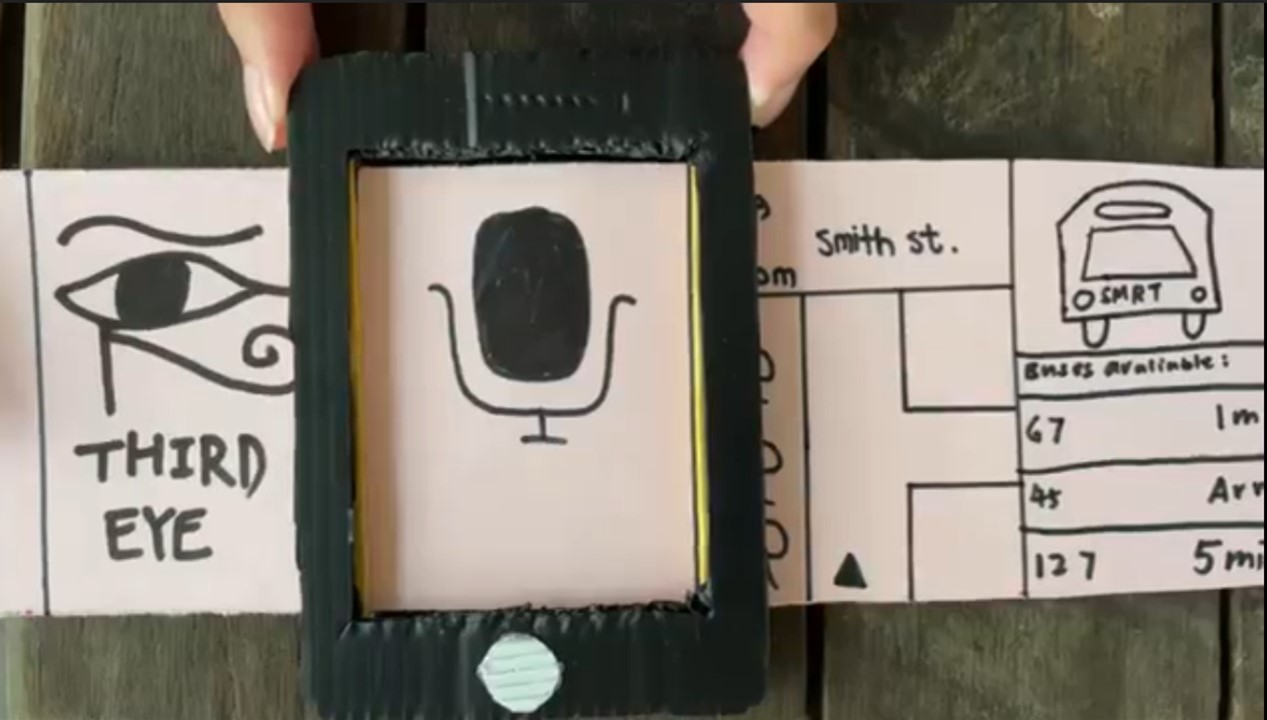 THIRD
EYE
Smith st.
SMRT
Buses avaliable:
67 1m
45 Arr
127 5mi